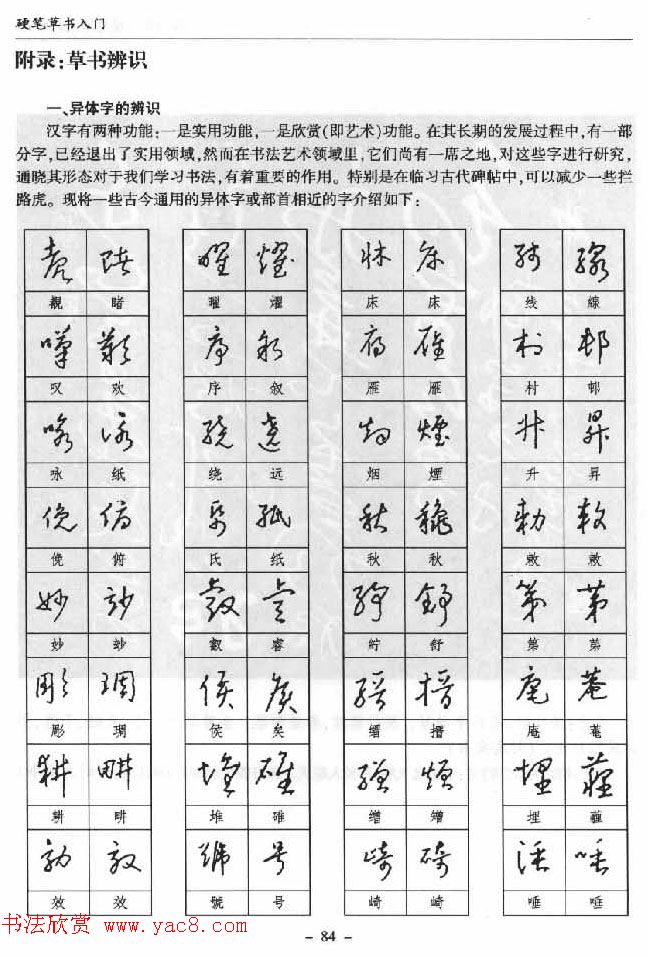 硬笔草书入门
附录:草书辨识
一、异体字的辨识
汉字有两种功能:一是实用功能,一是欣赏(即艺术)功能。在其长期的发展过程中,有一部
分字,已经退出了实用领域,然而在书法艺术领域里,它们尚有一席之地,对这些字进行研究,
通晓其形态对于我们学习书法,有着重要的作用。特别是在临习古代碑帖中,可以减少一些拦
路虎。现将一些古今通用的异体字或部首相近的字介绍如下:
覩 睹 曜 燿 床 床 线 線
叹 欢 序 叙 雁 雁 村 邨
咏 纸 绕 远 烟 煙 升 昇
俛 俯 氏 纸 秋 秋 敕 敕
妙 玅 叡 睿 紵 舒 第 苐
彫 琱 侯 矦 缙 搢 庵 菴
耕 畊 堆 碓 缯 矰 埋 薶
效 效 號 号 崎 崎 唾 唾
书法欣赏 www.yac8.com
- 84 -